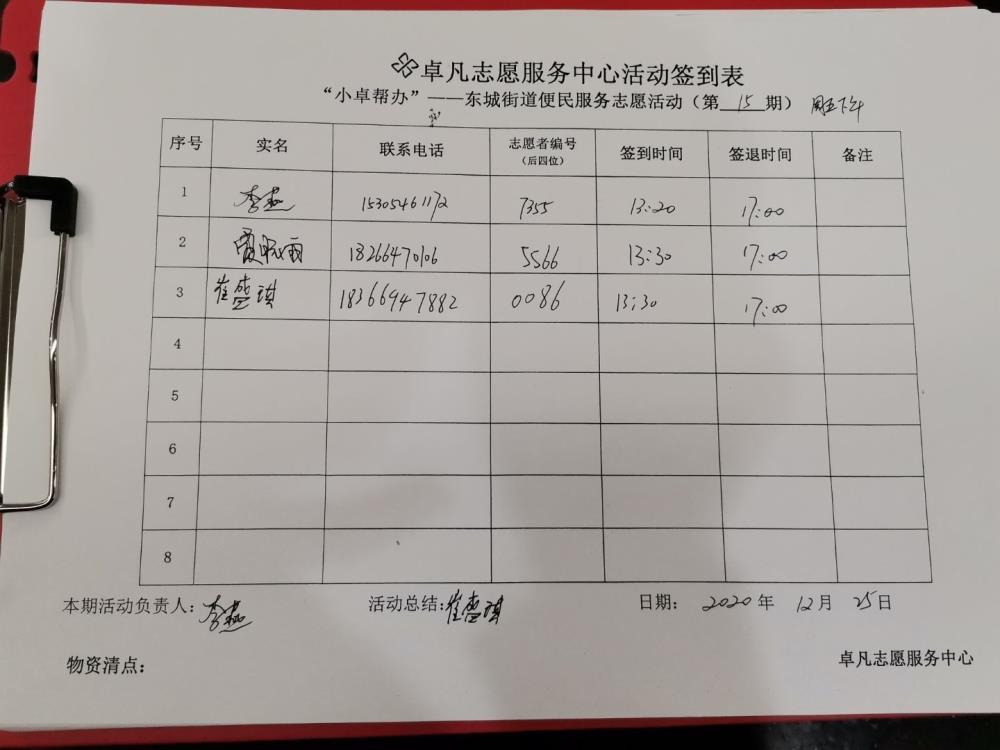 卓凡志愿服务中心活动签到表
“小卓帮办”——东城街道便民服务志愿活动（第 15 期） 周五下午
序号 实名 联系电话 志愿者编号（后四位） 签到时间 签退时间 备注
1 李燕 15305461172 7355 13:20 17:00
2 雨 18266470106 5566 13:30 17:00
3 崔盛琪 18366947882 0086 13:30 17:00
4
5
6
7
8
本期活动负责人：李燕 活动总结：崔盛琪 日期： 2020 年 12 月 25 日
物资清点： 卓凡志愿服务中心